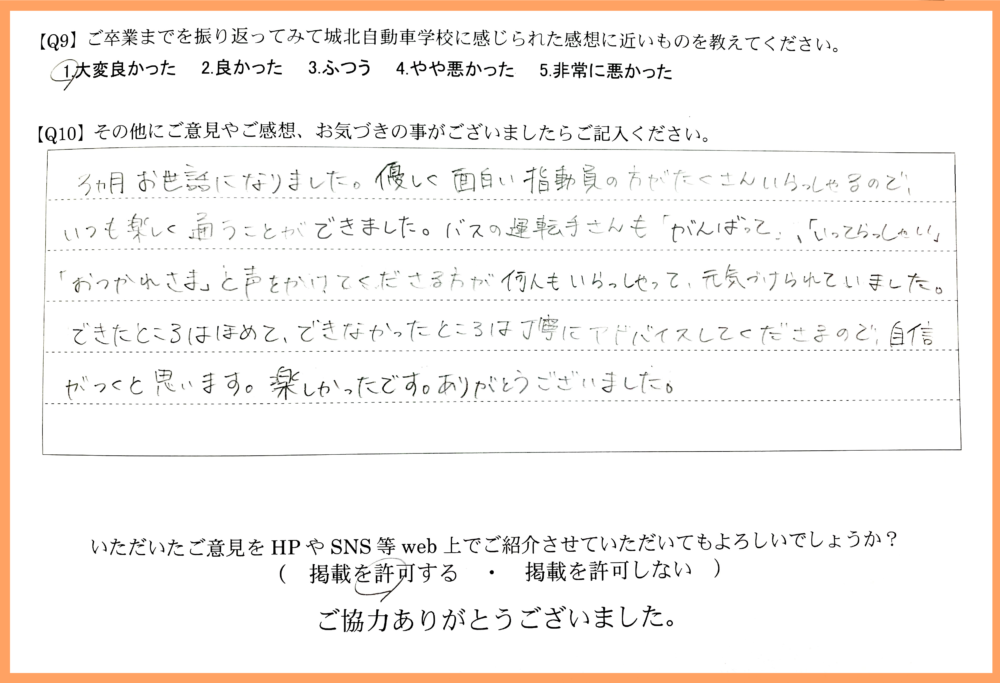 【Q9】ご卒業までを振り返ってみて城北自動車学校に感じられた感想に近いものを教えてください。
1.大変良かった 2.良かった 3.ふつう 4.やや悪かった 5.非常に悪かった
【Q10】その他にご意見やご感想、お気づきの事がございましたらご記入ください。
3ヵ月お世話になりました。優しく面白い指動員の方がたくさんいらっしゃるので、
いつも楽しく通うことができました。バスの運転手さんも「がんばって」、「いってらっしゃい」
「おつかれさま」と声をかけてくださる方が何人もいらっしゃって、元気づけられていました。
できたところはほめて、できなかったところは丁寧にアドバイスしてくださるので、自信
がつくと思います。楽しかったです。ありがとうございました。
いただいたご意見をHPやSNS等web上でご紹介させていただいてもよろしいでしょうか？
（ 掲載を許可する ・ 掲載を許可しない ）
ご協力ありがとうございました。